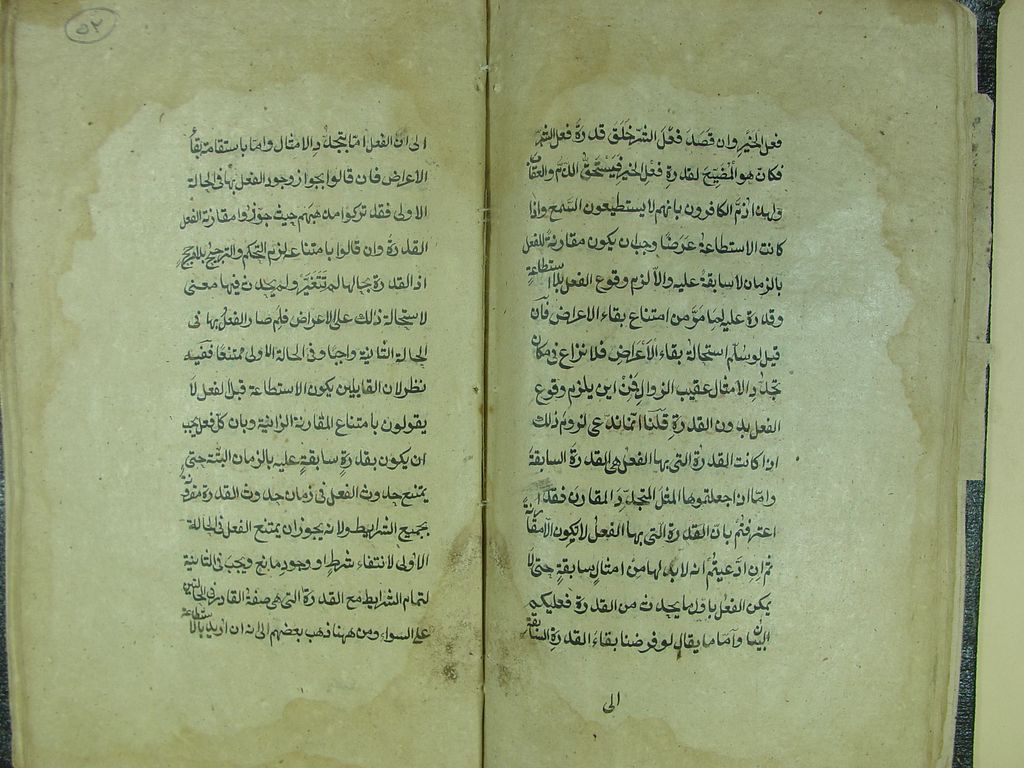 فعل الخير وان قصد فعل الشر خلق قدرة فعل الشر
فكان هو المضيع لقدرة فعل الخير فيستحق الذم والعقاب
ولهذا ذم الكافرون بانهم لا يستطيعون السمع واذا
كانت الاستطاعة عرضا وجب ان يكون مقارنة للفعل
بالزمان لا سابقة عليه والا لزم وقوع الفعل بلا استطاعة
وقدرة عليه لما مر من امتناع بقاء الاعراض فان
قيل لو سلم استحالة بقاء الاعراض فلا نزاع في مكان
تجدد الامثال عقيب الزوال فمن اين يلزم وقوع
الفعل بدون القدرة قلنا انما ندعى لزوم ذلك
اذا كانت القدرة التى بها الفعل هى القدرة السابقة
واما اذا جعلتموها المثل المتجدد المقارن فقد
اعترفتم بان القدرة التى بها الفعل لا يكون الا مقارنة
ثم ان ادعيتم انه لا بد لها من امثال سابقة حتى لا
يمكن الفعل باول ما يحدث من القدرة فعليكم
البيان واما ما يقال لو فرضنا بقاء القدرة السابقة
الى
٥٢
الى ان الفعل اما بتجدد الامثال واما باستقامة بقاء
الاعراض فان قالوا بجواز وجود الفعل بها فى الحالة
الاولى فقد تركوا مذهبهم حيث جوزوا مقارنة الفعل
القدرة وان قالوا بامتناعه لزم التحكم والترجيح بلا مرجح
اذ القدرة بحالها لم تتغير ولم يحدث فيها معنى
لاستحالة ذلك على الاعراض فلم صار الفعل بها فى
الحالة الثانية واجبا وفى الحالة الاولى ممتنعا ففيه
نظر لان القايلين بكون الاستطاعة قبل الفعل لا
يقولون بامتناع المقارنة الزمانية وبان كل فعل يجب
ان يكون بقدرة سابقة عليه بالزمان البتة حتى
يمتنع حدوث الفعل فى زمان حدوث القدرة مقرونة
بجميع الشرايط ولانه يجوز ان يمتنع الفعل فى الحالة
الاولى لانتفاء شرط او وجود مانع ويجب فى الثانية
لتمام الشرايط مع القدرة التى هى صفة القادر فى الحالتين
على السواء ومن ههنا ذهب بعضهم الى انه ان اريد بالاستطاعة